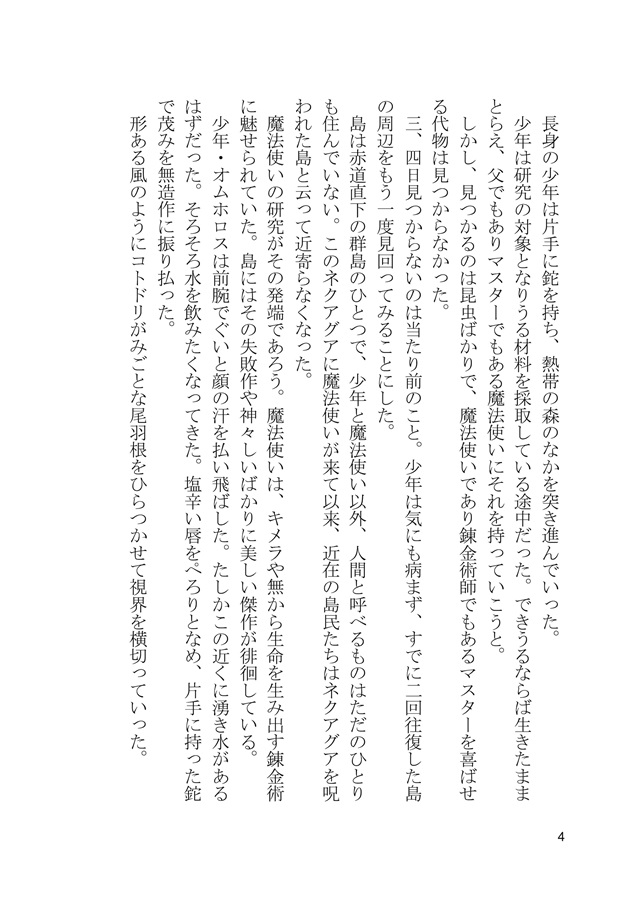 長身の少年は片手に鉈を持ち、熱帯の森のなかを突き進んでいった。
少年は研究の対象となりうる材料を採取している途中だった。できうるならば生きたまま
とらえ、父でもありマスターでもある魔法使いにそれを持っていこうと。
しかし、見つかるのは昆虫ばかりで、魔法使いであり錬金術師でもあるマスターを喜ばせ
る代物は見つからなかった。
三、四日見つからないのは当たり前のこと。少年は気にも病まず、すでに二回往復した島
の周辺をもう一度見回ってみることにした。
島は赤道直下の群島のひとつで、少年と魔法使い以外、人間と呼べるものはただのひとり
も住んでいない。このネクアグアに魔法使いが来て以来、近在の島民たちはネクアグアを呪
われた島と云って近寄らなくなった。
魔法使いの研究がその発端であろう。魔法使いは、キメラや無から生命を生み出す錬金術
に魅せられていた。島にはその失敗作や神々しいばかりに美しい傑作が徘徊している。
少年・オムホロスは前腕でぐいと顔の汗を払い飛ばした。たしかこの近くに湧き水がある
はずだった。そろそろ水を飲みたくなってきた。塩辛い唇をぺろりとなめ、片手に持った鉈
で茂みを無造作に振り払った。
形ある風のようにコトドリがみごとな尾羽根をひらつかせて視界を横切っていった。
4